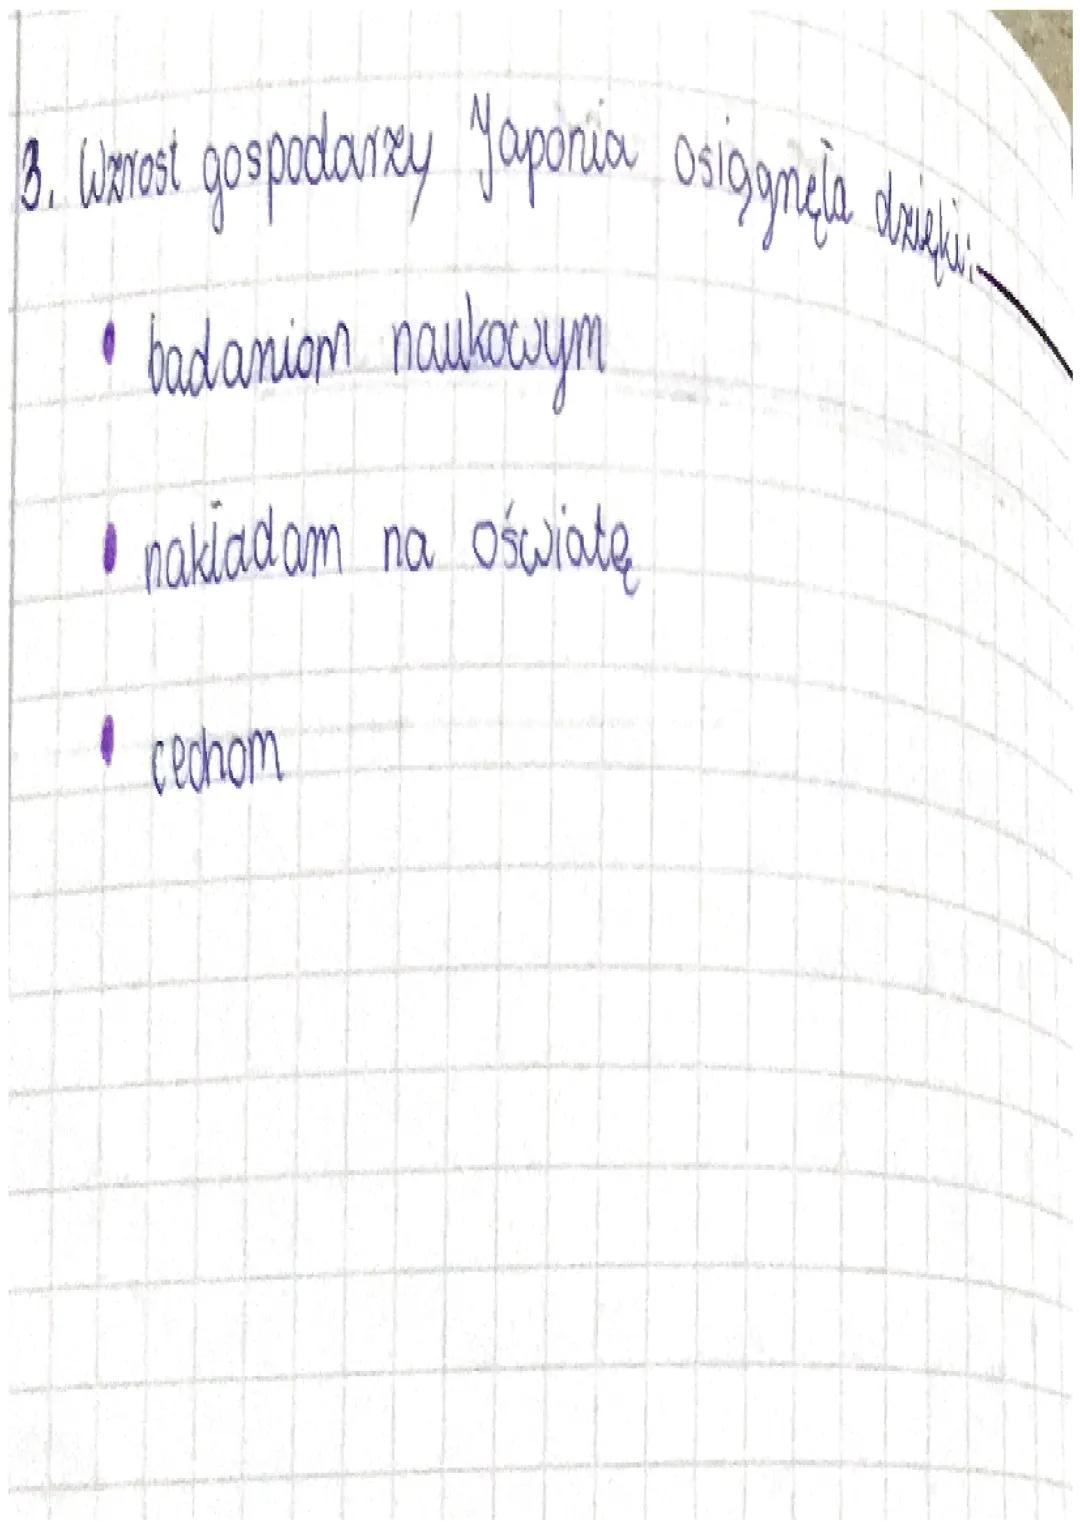 3. Wzrost gospodarzy Japonia osiągnęła dzięki:
• badaniom naukowym
• nakładom na oświatę
• cechom